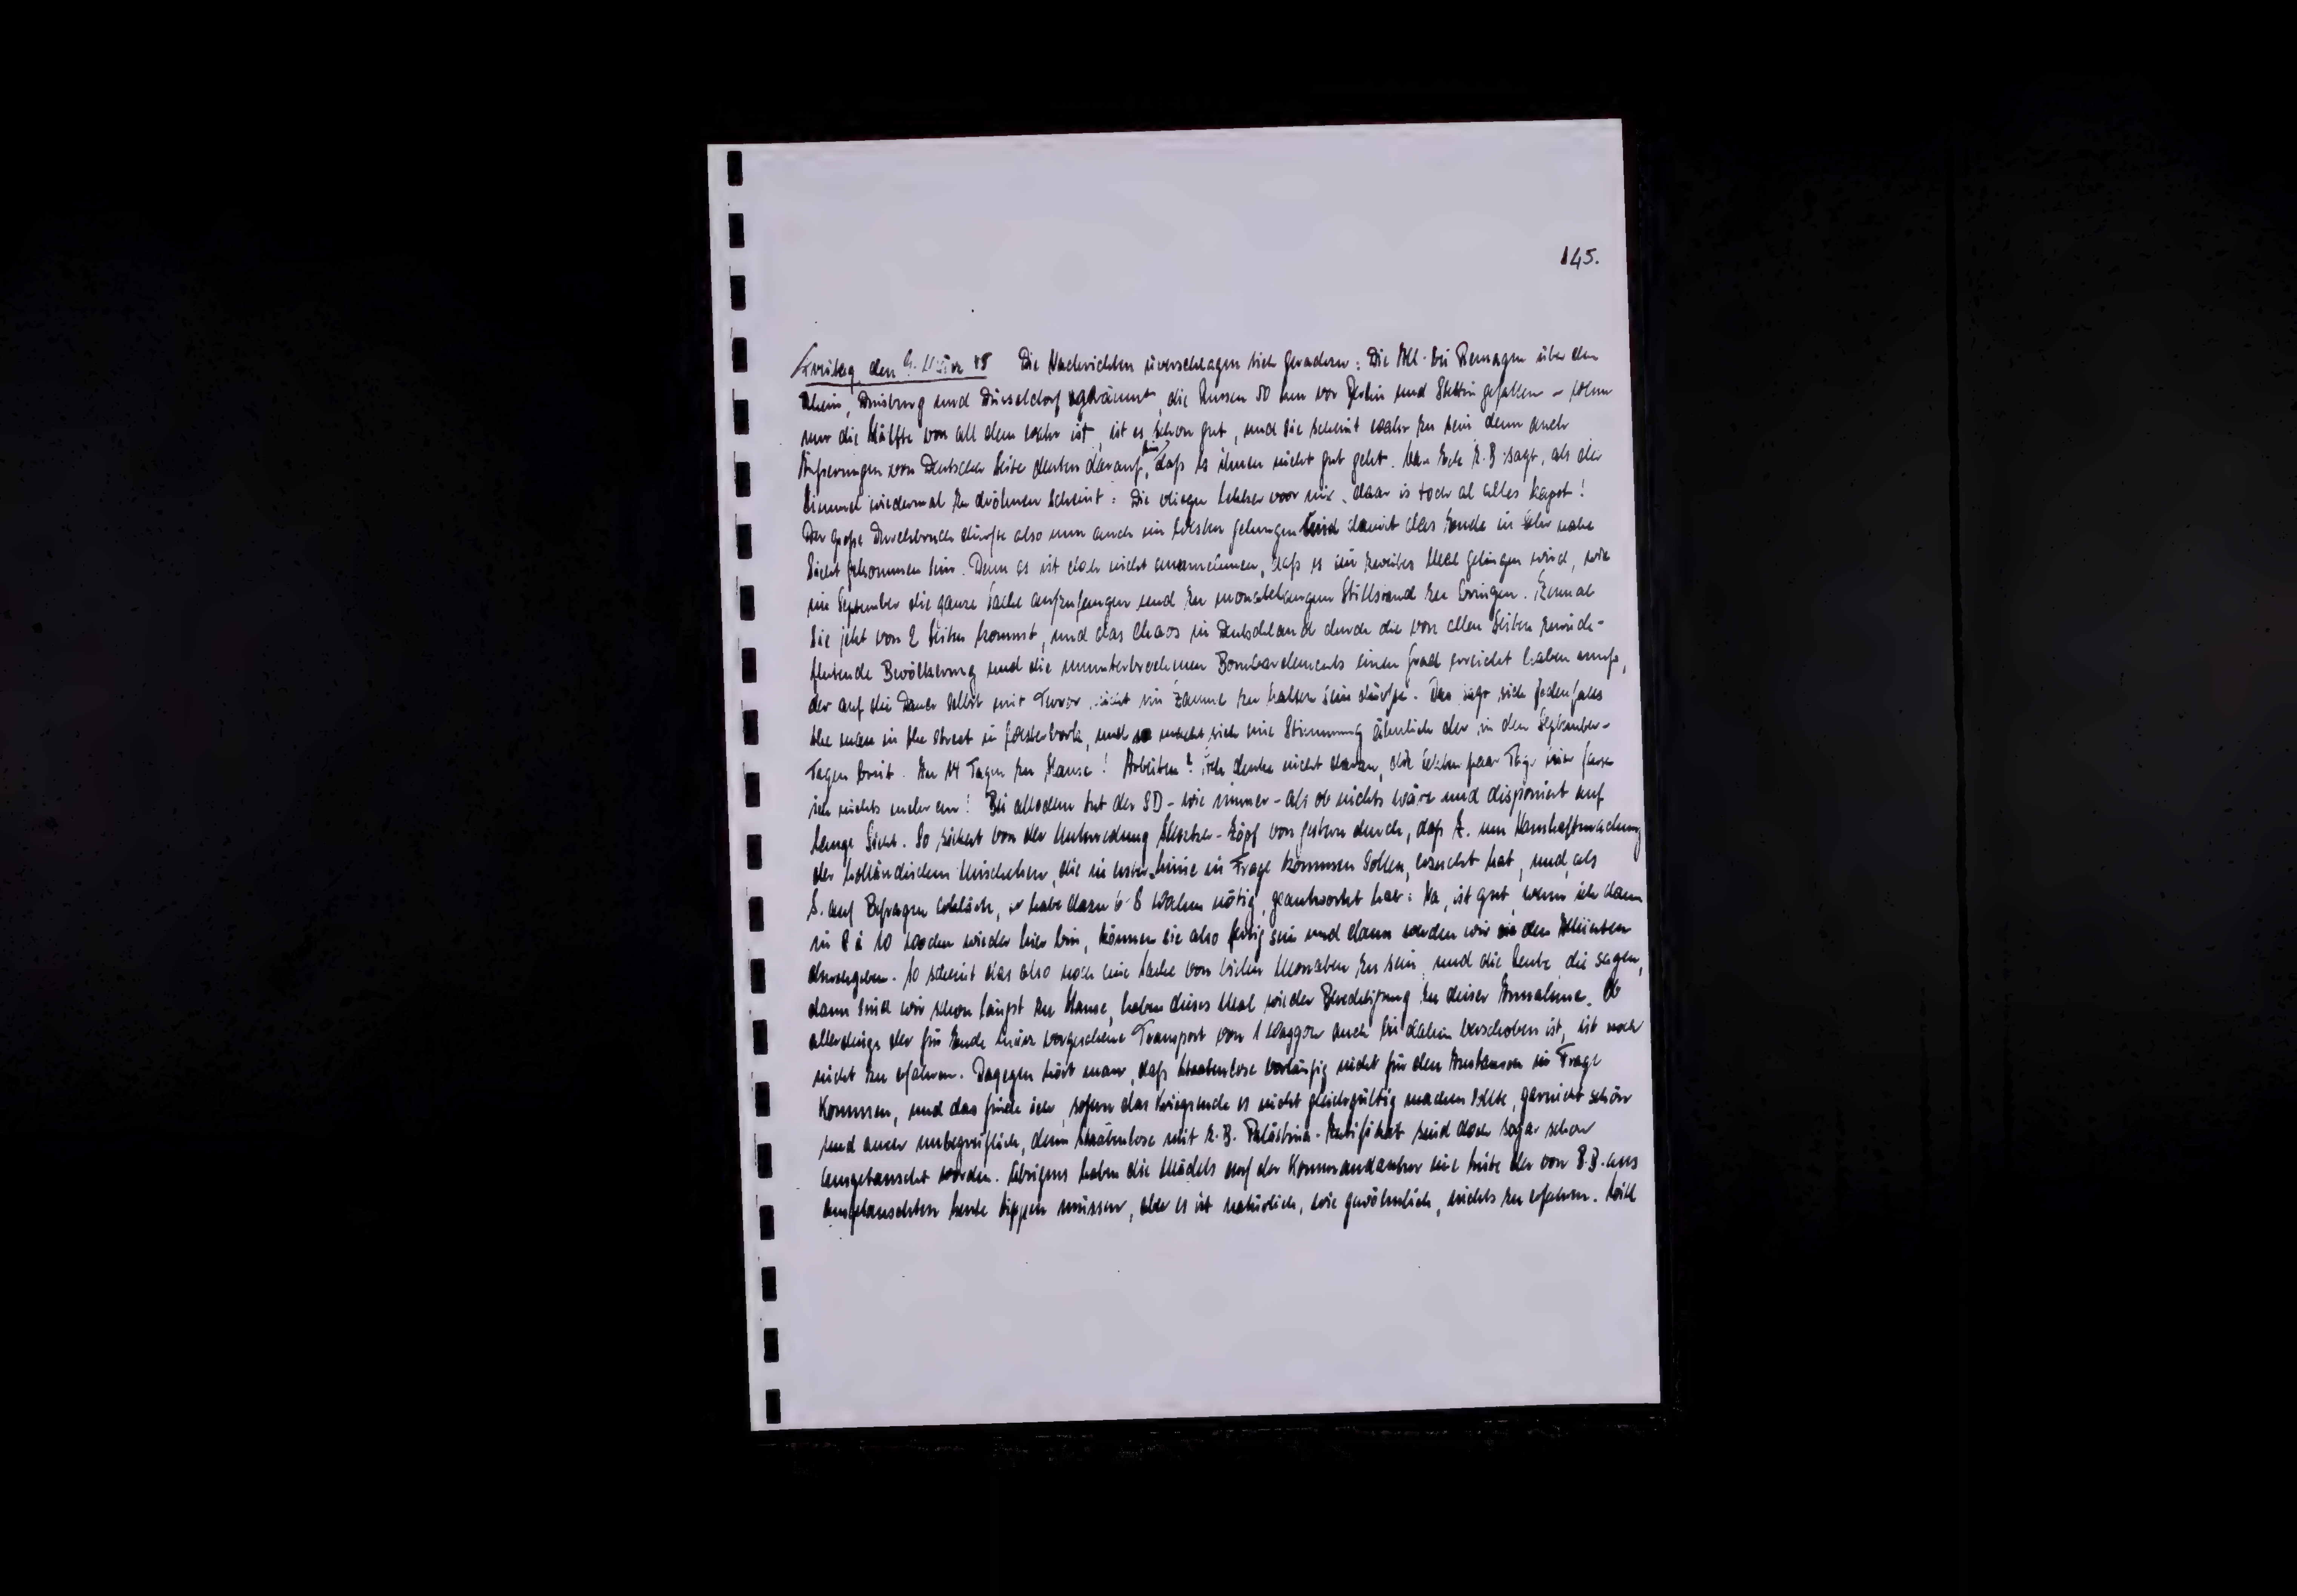 145.
Freitag, den 9. März 45 Die Nachrichten überschlagen sich geradezu: Die All. bei Remagen über den
Rhein, Duisburg und Düsseldorf geräumt, die Russen 50 km vor Berlin und Stettin gefallen – wenn
nur die Hälfte von all dem wahr ist, ist es schon gut, und sie scheint wahr zu sein denn auch
Äußerungen von Deutscher Seite deuten darauf hin, daß es ihnen nicht gut geht. z.B. sagt, als der
Himmel wiedermal zu dröhnen scheint: Die vliegen lekker voor nix, daar is toch al alles kapot!
Der große Durchbruch dürfte also nun auch im Westen gelungen und damit das Ende in sehr nahe
Sicht gekommen sein. Denn es ist doch nicht anzunehmen, daß es ein zweites Mal gelingen wird, wie
im September die ganze Sache aufzufangen und zu monatelangem Stillstand zu bringen. Zumal
sie jetzt von 2 Seiten kommt, und das Chaos in Deutschland durch die von allen Seiten zurück-
flutende Bevölkerung und die ununterbrochenen Bombardements einen Grad erreicht haben muß,
der auf die Dauer selbst mit Terror nicht im Zaume zu halten sein dürfte. Das sagt sich jedenfalls
the man in the street in Westerbork, und so macht sich eine Stimmung ähnlich der in den September-
Tagen breit. In 14 Tagen zu Hause! Arbeiten? Ich denke nicht daran, die letzten paar Tage hier fasse
ich nichts mehr an! Bei alledem tut der SD – wie immer – als ob nichts wäre und disponiert auf
lange Sicht. So sickert von der Unterredung – Zöpf von gestern durch, daß Z. um Namhaftmachung
der holländischen Mischehen, die in erster Linie in Frage kommen sollen, ersucht hat, und, als
S. auf Befragen erklärte, er habe dazu 6-8 Wochen nötig, geantwortet hat: Na, ist gut, wenn ich dann
in 8 à 10 Wochen wieder hier bin, können sie also fertig sein und dann werden wir sie den Alliierten
durchgeben. So scheint das also noch eine Sache von vielen Monaten zu sein, und die Leute, die sagen,
dann sind wir schon längst zu Hause, haben dieses Mal wieder Berechtigung zu dieser Annahme. Ob
allerdings der für Ende März vorgesehene Transport von 1 Waggon auch bis dahin verschoben ist, ist noch
nicht zu erfahren. Dagegen hört man, daß Staatenlose vorläufig nicht für den Austausch in Frage
kommen, und das finde ich, sofern das Kriegsende es nicht gleichgültig machen sollte, garnicht schön
und auch unbegreiflich, denn Staatenlose mit z.B. Palästina-Zertifikat sind doch sogar schon
ausgetauscht worden. Übrigens haben die Mädels auf der Kommandantur eine Liste der von B.B. aus
Ausgetauschten heute tippen müssen, aber es ist natürlich, wie gewöhnlich, nichts zu erfahren. Will